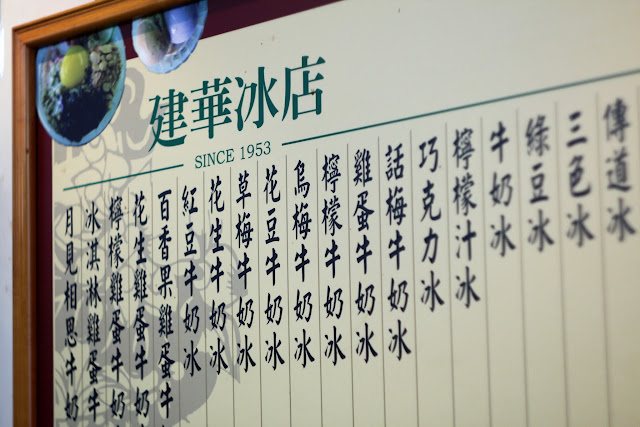 建華冰店
SINCE 1953
傳道冰
三色冰
綠豆冰
牛奶冰
檸檬汁冰
巧克力冰
話梅牛奶冰
雞蛋牛奶冰
檸檬牛奶冰
烏梅牛奶冰
花豆牛奶冰
草梅牛奶冰
花生牛奶冰
紅豆牛奶冰
百香果雞蛋牛
花生雞蛋牛奶
檸檬雞蛋牛奶
冰淇淋雞蛋牛
月見相思牛奶